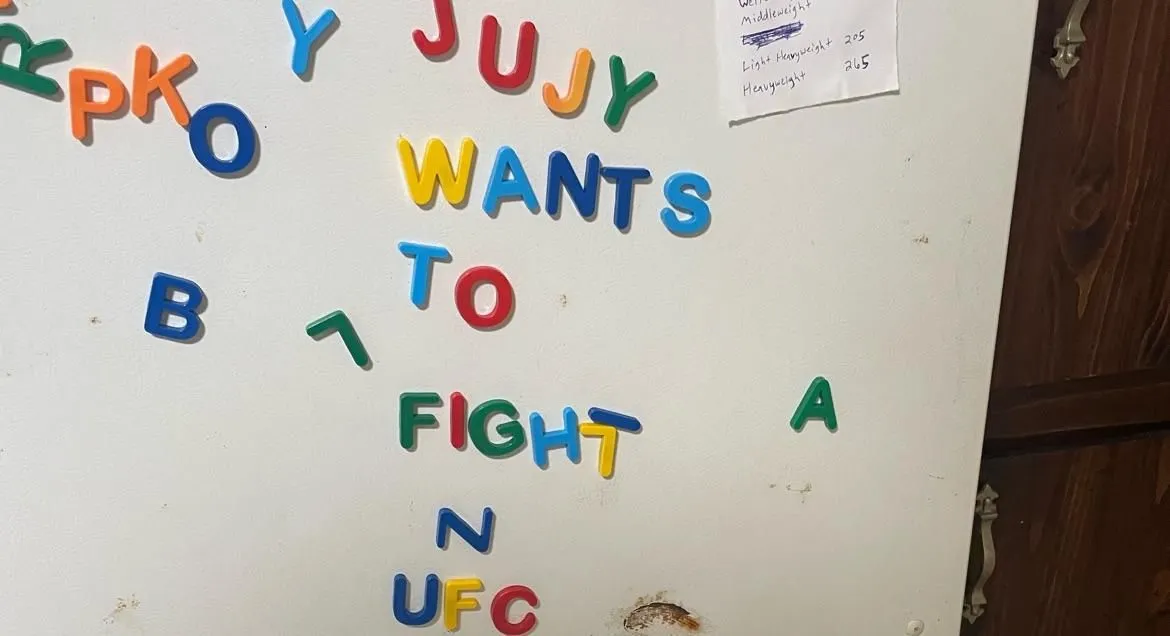 R
P K O
Y
JUJY
WANTS
TO
B
L
FIGHT
A
N
UFC
Middleweight
Light Heavyweight 205
Heavyweight 265